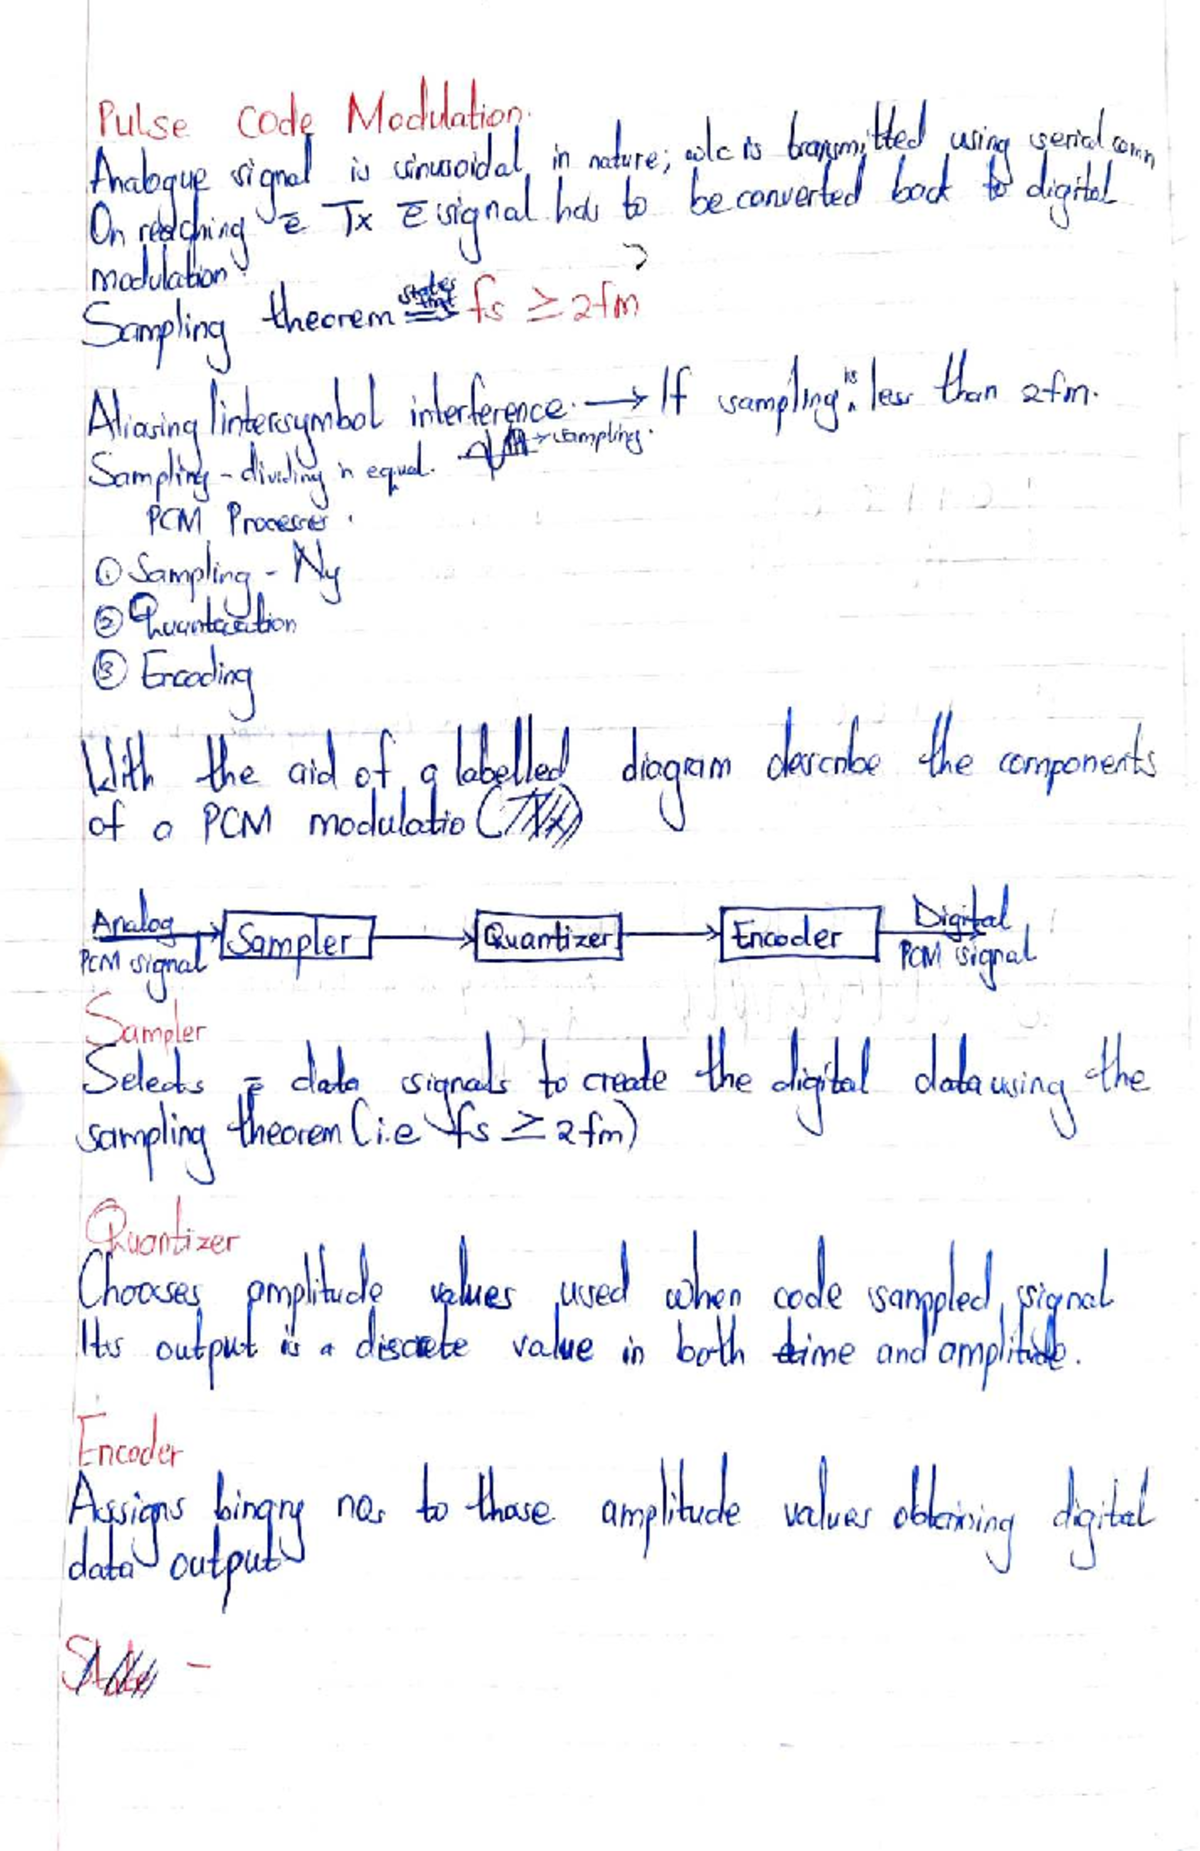 Pulse Code Modulation.
Analogue signal is sinusoidal in nature; is transmitted using serial comm
On reaching ē Tx ē signal has to be converted back to digital
modulation
Sampling theorem states that fs ≥ 2fm
Aliasing/intersymbol interference. → If sampling is less than 2fm.
Sampling - dividing n equal. → sampling.
PCM Processes.
① Sampling - Ny
② Quantization
③ Encoding
With the aid of a labelled diagram describe the components
of a PCM modulatio
Analog
PCM signal
Sampler
Quantizer
Encoder
Digital
PCM signal
Sampler
Selects ē data signals to create the digital data using the
sampling theorem (i.e fs ≥ 2fm)
Quantizer
Chooses amplitude values used when code sampled signal
Its output is a discrete value in both time and amplitude.
Encoder
Assigns binary nos to those amplitude values obtaining digital
data output